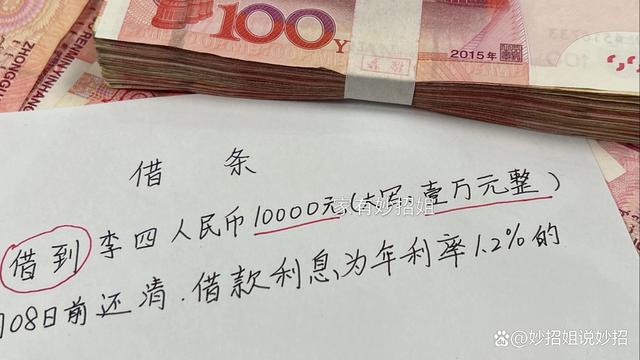 100
2015年
借 条
借到李四人民币10000元(大写:壹万元整)
家有妙招姐
08日前还清.借款利息为年利率1.2%的
@妙招姐说妙招